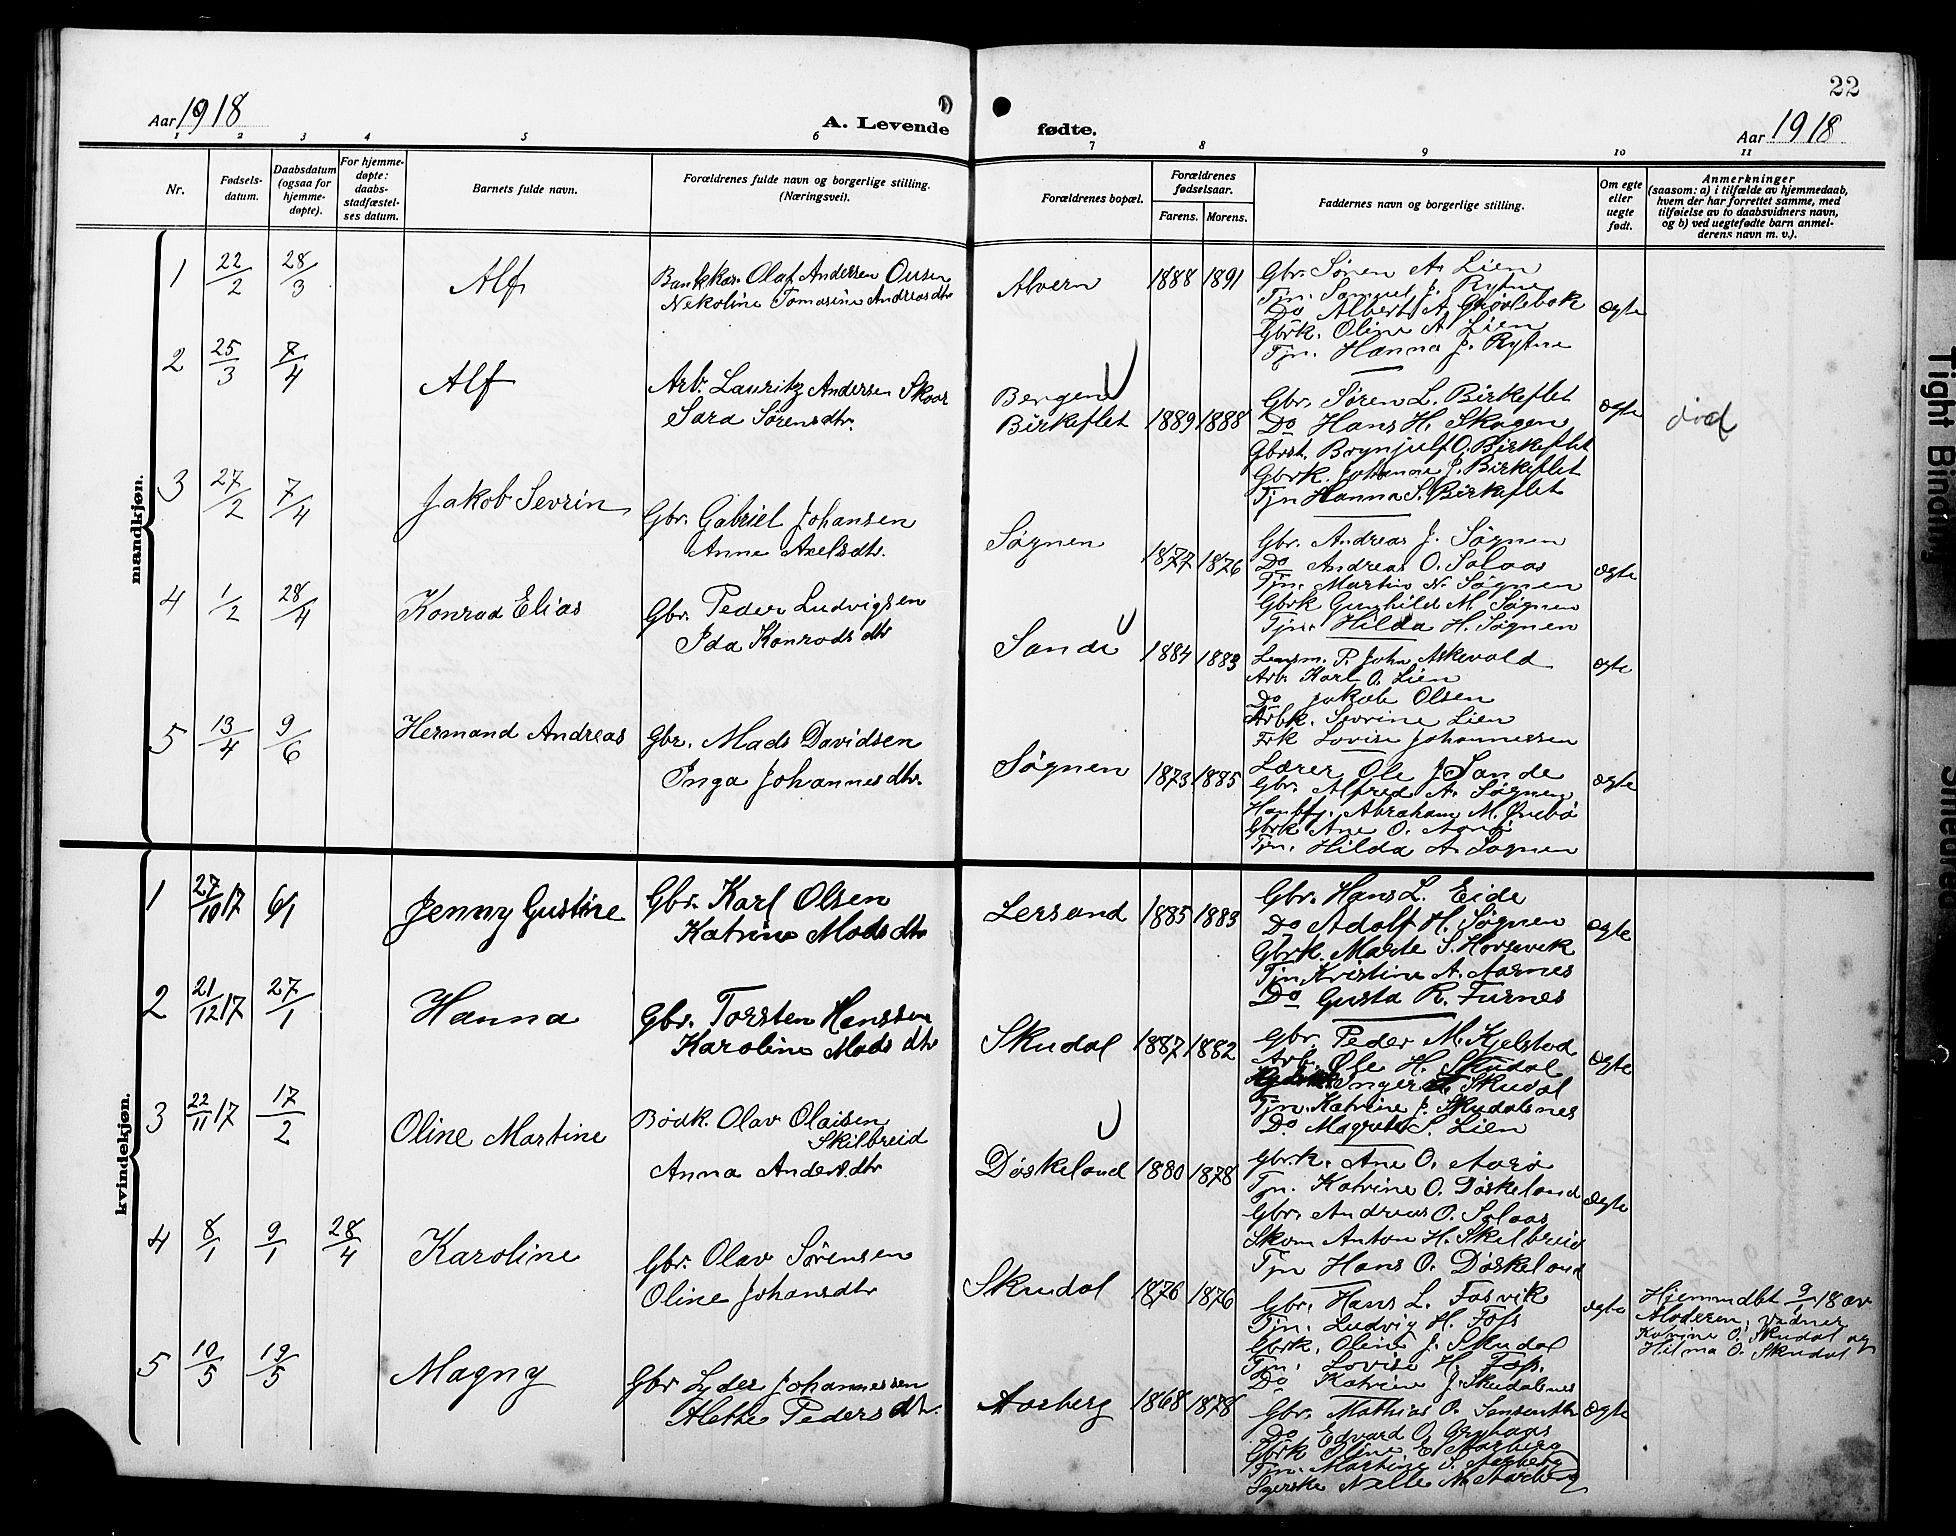 22
Aar 1918
A. Levende
fødte.
Aar 1918
1 2 3 4 5 6 7 8 9 10 11
Nr.
Fødsels-
datum.
Daabsdatum
(ogsaa for
hjemme-
døpte).
For hjemme-
døpte:
daabs-
stadfæstel-
ses datum.
Barnets fulde navn.
Forældrenes fulde navn og borgerlige stilling.
(Næringsvei).
Forældrenes bopæl.
Forældrenes
fødselsaar.
Farens. Morens.
Faddernes navn og borgerlige stilling.
Om egte
eller
uegte
født.
Anmerkninger
(saasom: a) i tilfælde av hjemmedaab,
hvem der har forrettet samme, med
tilføielse av to daabsvidners navn,
og b) ved uegtefødte barn anmel-
derens navn m. v.).
mandkjøn.
1 22/2 28/3 Alf
Bankkas. Olaf Andersen
Nekoline Tomasine Andreasdtr
Alvern 1888 1891
Gbr. Søren A. Lien
Tjn. Samuel J. Rytne
Do Albert A. Grøvlebak
Gbrk. Oline A. Lien
Tjn. Hanna J. Rytne
egte
2 25/3 7/4 Alf
Arb. Lauritz Andersen Skaar
Sara Sørensdtr.
Bergen
Birkeflet 1889 1888
Gbr. Søren L. Birkeflet
Do Hans H. Skogen
Gbrst. Brynjulf O. Birkeflet
Gbrk. Johanna J. Birkeflet
Tjn Hanna S. Birkeflet
egte
død
3 27/2 7/4 Jakob Sevrin
Gbr. Gabriel Johansen
Anne Axelsdtr.
Søgnen 1877 1876
Gbr. Andreas J. Søgnen
Do Andreas O. Solaas
Tjn. Martin N. Søgnen
Gbrk Gunhild M. Søgnen
Tjn. Hilda H. Søgnen
egte
4 1/2 28/4 Konrad Elias
Gbr. Peder Ludvigsen
Ida Konradsdtr
Sande 1884 1883
Lensm. P. John Askevold
Arb. Karl O. Lien
Do Jakob Olsen
Arbk. Sevrine Lien
Frk Lovise Johannessen
egte
5 13/4 9/6 Hermand Andreas
Gbr. Mads Davidsen
Inga Johannesdtr.
Søgnen 1873 1885
Lærer Ole J. Sande
Gbr. Alfred A. Søgnen
Abraham M.
Gbrk Ane O. Aarø
Tjn. Hilda A. Søgnen
egte
kvindekjøn.
1 27/10 17 6/1 Jenny Gustine
Gbr. Karl Olsen
Katrine Madsdtr
Lersand 1885 1883
Gbr. Hans L. Eide
Do Adolf H. Søgnen
Gbrk. Marte S. Horsevik
Tjn Kristine A. Aarnes
Do Gusta R. Furnes
egte
2 21/12 17 27/1 Hanna
Gbr. Torsten Hanssen
Karoline Madsdtr
Skudal 1887 1882
Gbr. Peder M. Kjelstad
Arb. Ole H. Skudal
Inger Skudal
Tjn. Katrine J. Skudalsnes
Do. Magrete S. Lien
egte
3 22/11 17 17/2 Oline Martine
Bødk. Olav Olaisen
Skilbreid
Anna Andersdtr
Døskeland 1880 1878
Gbr.k. Ane O. Aarø
Tjn. Katrine O. Døskeland
Gbr. Andreas O. Solaas
Skom Anton H. Skilbreid
Tjn Hans O. Døskeland
egte
4 8/1 9/1 28/4 Karoline
Gbr. Olav Sørensen
Oline Johansdtr
Skudal 1876 1876
Gbr. Hans L. Fosvik
Tjn. Ludvig H. Foss
Gbrk. Oline J. Skudal
Tjn. Lovise H. Foss.
Do Katrine J. Skudalsnes
egte
Hjemmdbt 9/1 18 av
Moderen, vidner
Katrine O. Skudal og
Hilma O. Skudal
5 10/5 19/5 Magny
Gbr Lyder Johannessen
Alethe Pedersdtr.
Aarberg 1868 1878
Gbr. Mathias O.
Do Edvard O.
Gbrk Oline E. Aarberg
Tjn. Martine S. Aarberg
Syerske Nelle N. Aarberg
egte
Tight Binding
Smeared